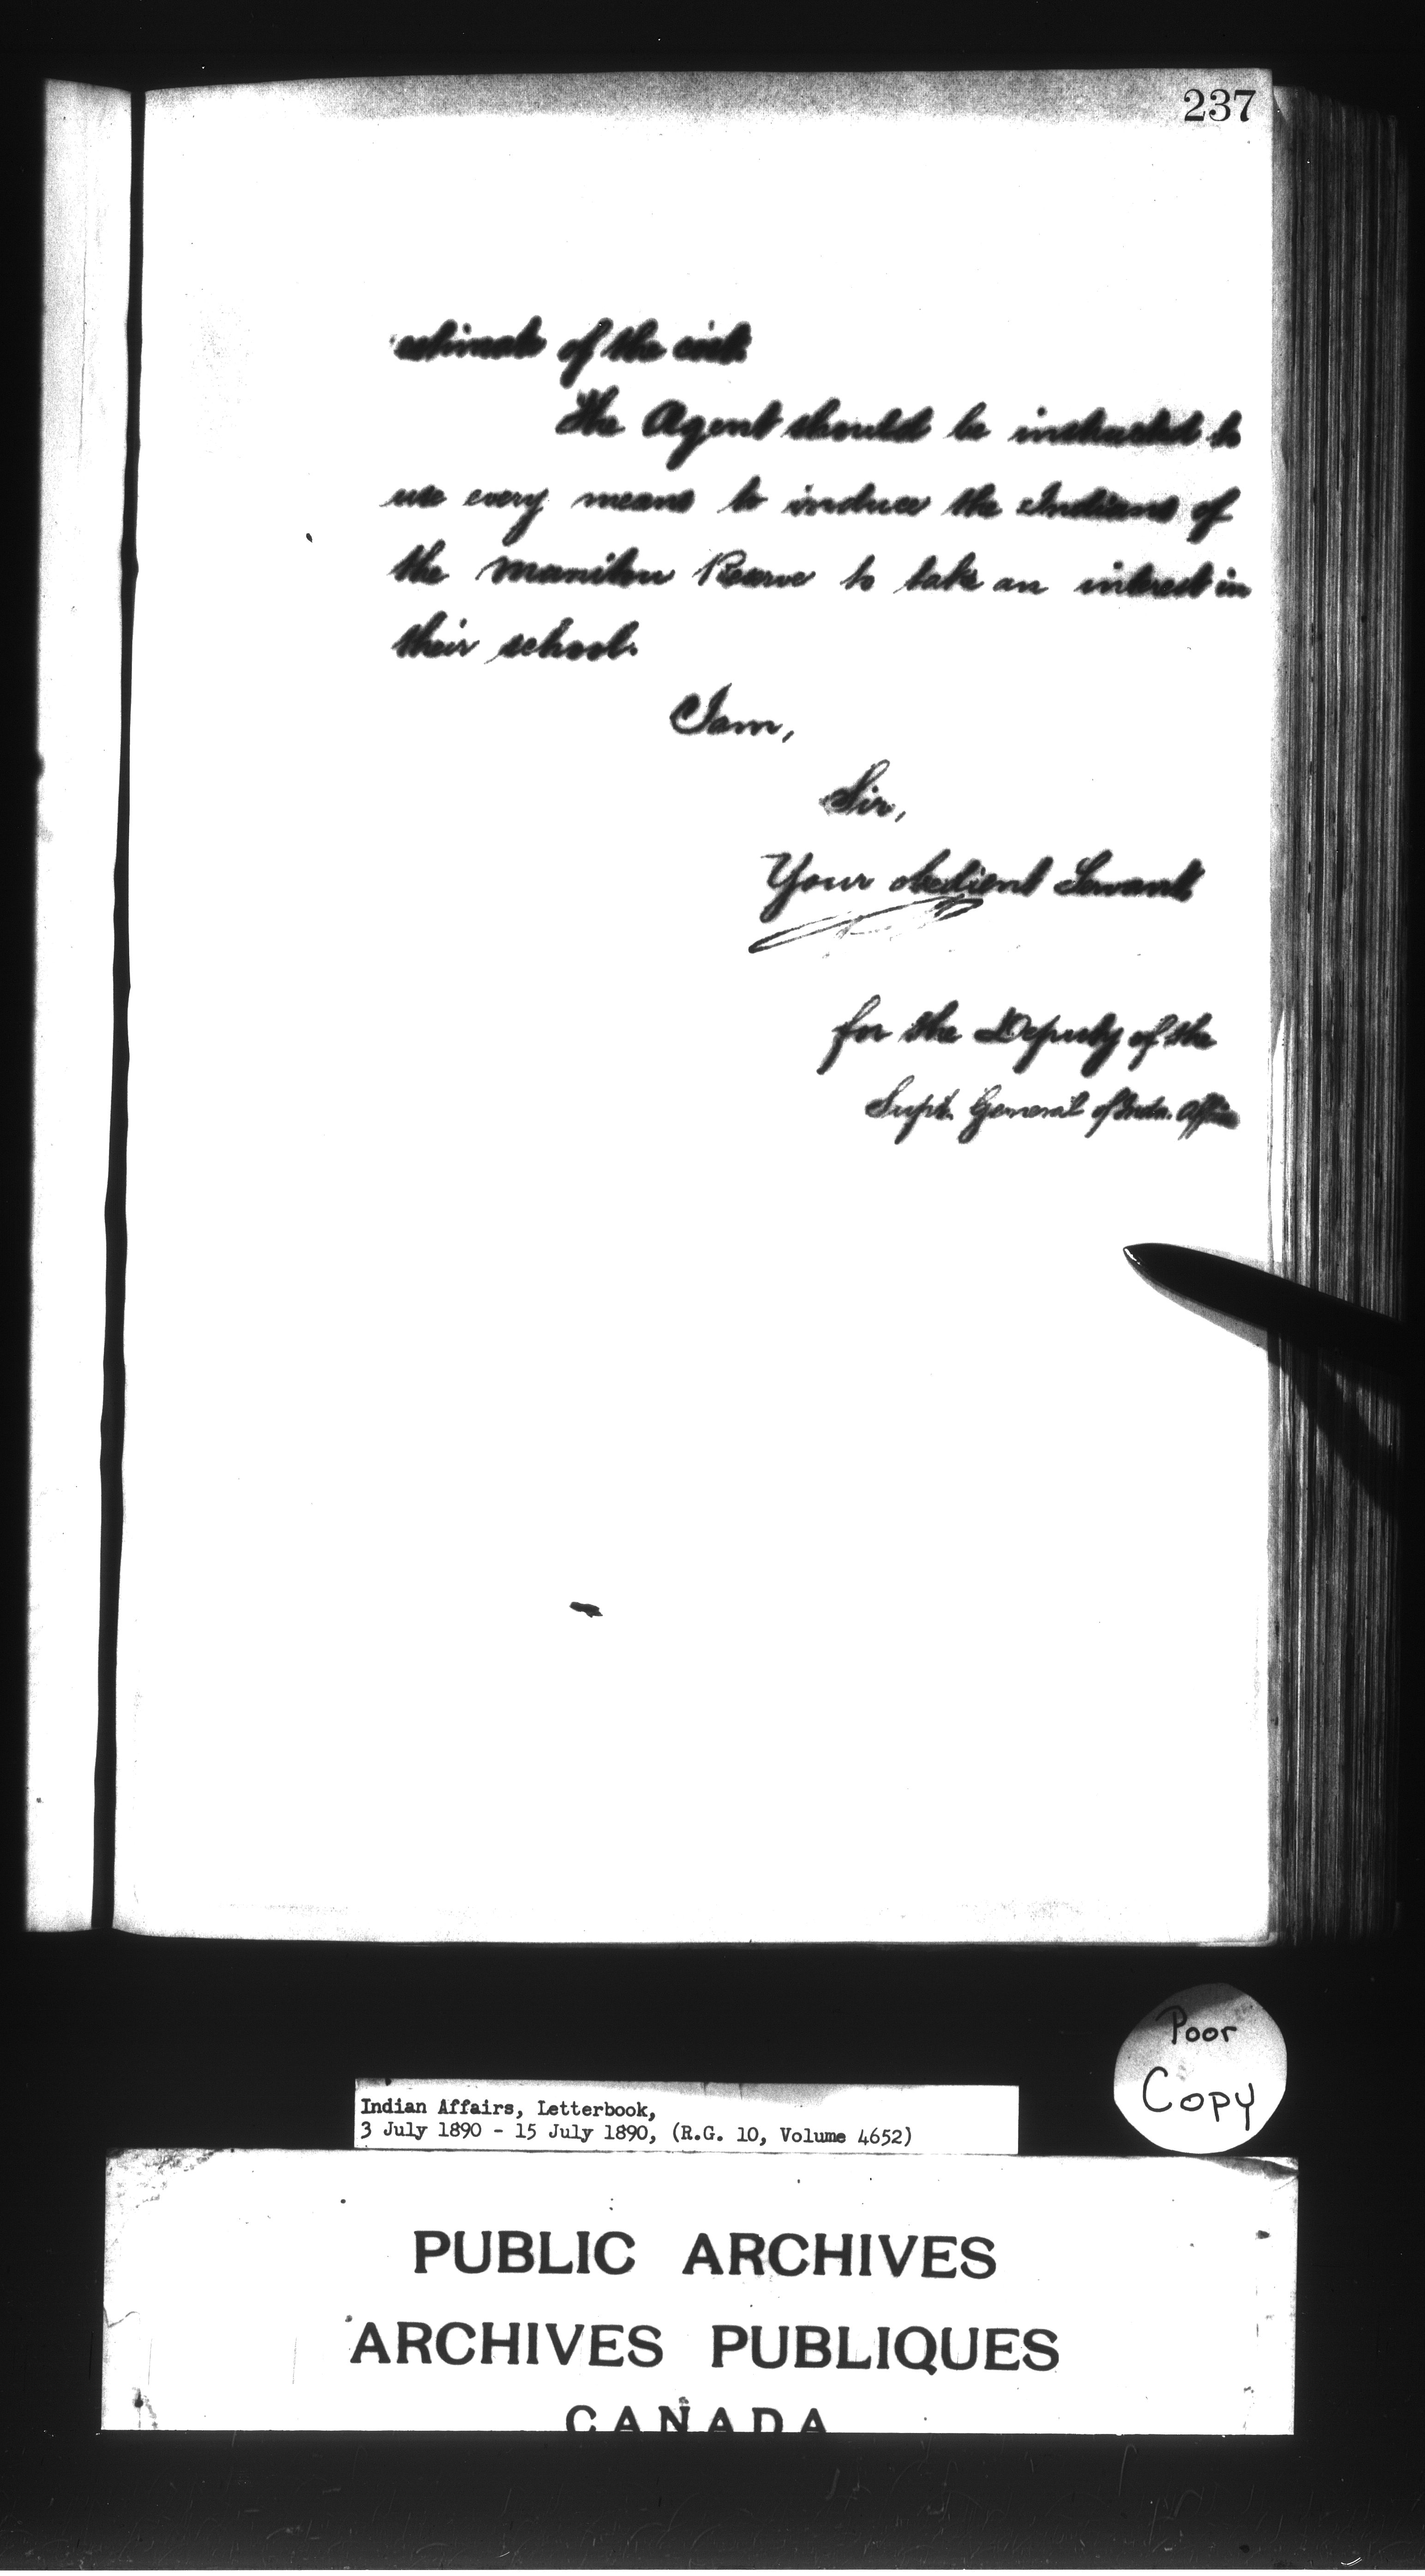 237
estimate of the cost.
The Agent should be instructed to
use every means to induce the Indians of
the Manitou Reserve to take an interest in
their school.
I am,
Sir,
Your obedient Servant
for the Deputy of the
Supt. General of Indn. Affairs
Poor
Copy
Indian Affairs, Letterbook,
3 July 1890 - 15 July 1890, (R.G. 10, Volume 4652)
PUBLIC ARCHIVES
ARCHIVES PUBLIQUES
CANADA